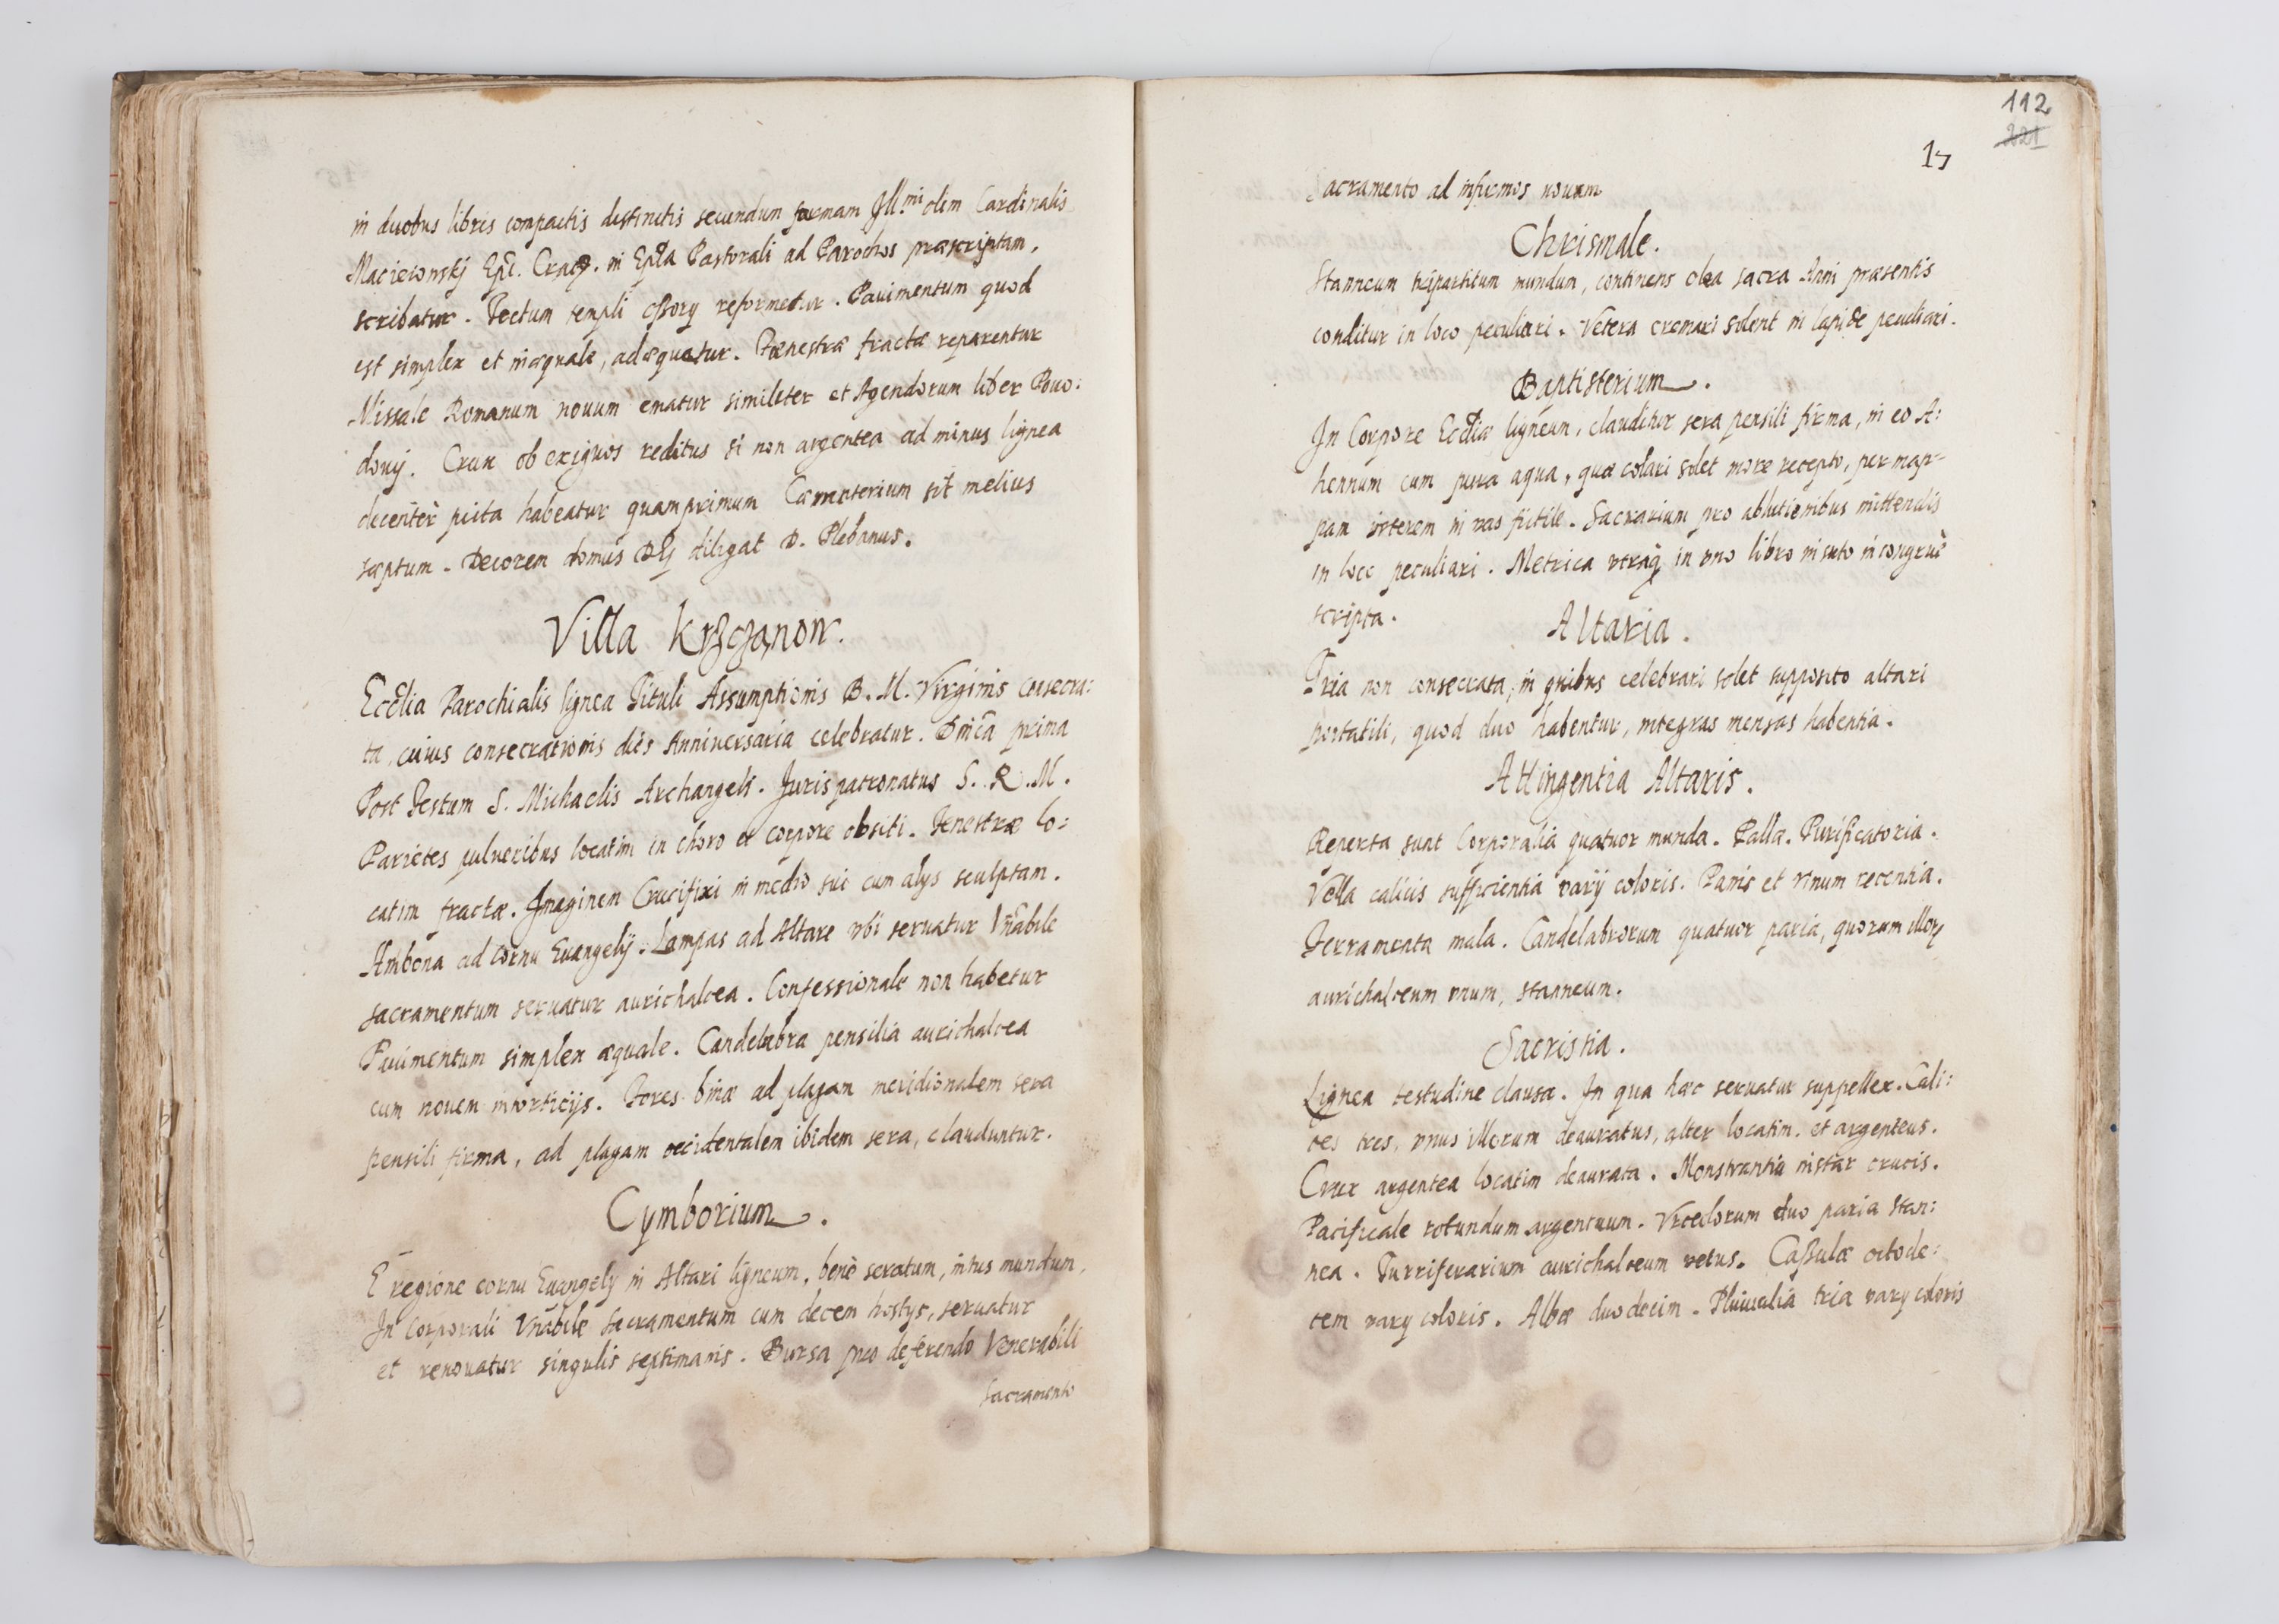 in duobus libris compactis distinctis secundum formam Jll.mi olim Cardinalis
Macieiowskÿ Epi. Crac. in Epla Pastorali ad Parochos præscriptam,
scribatur. Tectum templi ossorÿ reformetur. Pauimentum quod
est simplex et inæquale, adæquetur. Fœnestræ fractæ reparentur
Missale Romanum nouum ematur similiter et Agendorum liber Pouo:
douÿ. Crux ob exiguos reditus si non argentea ad minus lignea
decentèr picta habeatur quamprimum Cæmeterium sit melius
sæptum. Decorem domus DEJ diligat D. Plebanus.
Villa Krzczonow.
Ecclia Parochialis lignea Tituli Assumptionis B. M. Virginis consecra:
ta, cuius consecrationis dies Anniuersaria celebratur. Dnica prima
Post Festum S. Michaelis Archangeli. Juris patronatus S. R. M.
Parietes pulueribus locatim in choro et corpore obsiti. Fenestræ lo:
catim fractæ. Jmaginem Crucifixi in medio sui cum alÿs sculptam.
Ambona ad cornu Euangelÿ. Lampas ad Altare vbi seruatur Vnabile
sacramentum seruatur aurichalcea. Confessionale non habetur
Pauimentum simplex æquale. Candelabra pensilia aurichalcea
cum nouem Fores binæ ad plagam meridionalem sera
pensili firma, ad plagam occidentalem ibidem sera, clauduntur.
Cymborium.
E regione cornu Euangelÿ in Altari ligneum, benè seratum, intus mundum,
Jn Corporali Vnabile Sacramentum cum decem hostÿs, seruatur
et renouatur singulis septimanis. Bursa pro deferendo Venerabili
Sacramento
112
221
17
Sacramento ad infirmos nouam
Chrismale.
Stanneum tripartitum mundum, continens olea sacra Anni præsentis
conditur in loco peculiari. Vetera cremari solent in lapide peculiari.
Baptisterium.
Jn Corpore Eccliæ ligneum, clauditur sera pensili firma, in eo A:
hennum cum pura aqua, quæ colari solet more recepto, per map-
pam in vas fictile. Sacrarium pro ablutionibus mittendis
in loco peculiari. Metrica vtraq in vno libro insuto incongruè
scripta.
Altaria.
Tria non consecrata, in quibus celebrari solet supposito altari
portatili, quod duo habentur, integras mensas habentia.
Attingentia Altaris.
Reperta sunt Corporalia quatuor munda. Palla. Purificatoria.
Vella calicis sufficientia varÿ coloris. Panis et vinum recentia.
Ferramenta mala. Candelabrorum quatuor paria, quorum illor
aurichalceum vnum, stanneum.
Sacristia.
Lignea testudine clausa. Jn qua hæc seruatur suppellex. Cali:
ces tres, vnus illorum deauratus, alter locatim. et argenteus.
Crux argentea locatim deaurata. Monstrantia instar crucis.
Pacificale rotundum argenteum. Vrceolorum duo paria stan:
nea. Turriferarium aurichalceum vetus. Casulæ octode:
cem varÿ coloris. Albæ duodecim. Pluuialia tria varÿ coloris